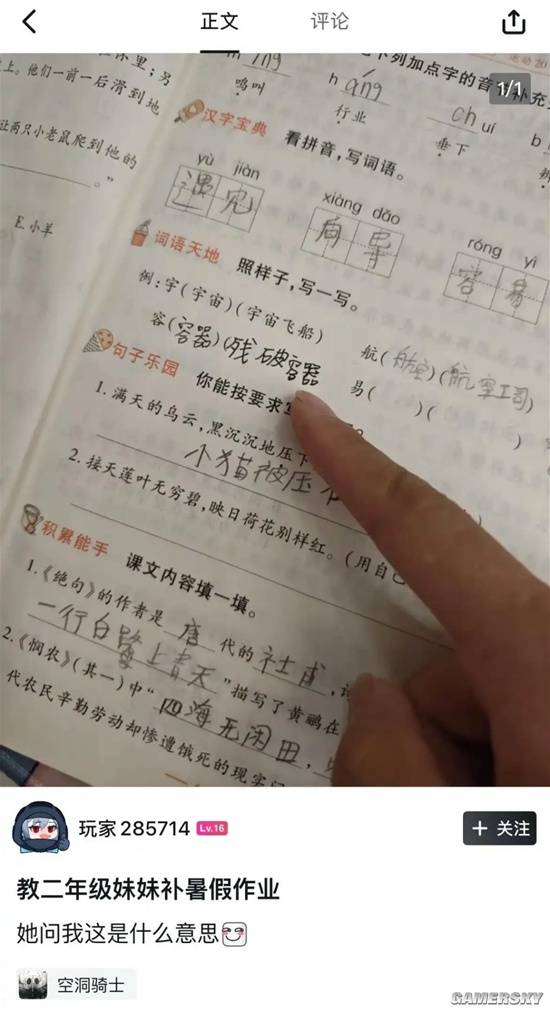 正文 评论
本里；另
上。他们一前一后滑到地
让两只小老鼠爬到他的
。”
E.小羊
下列加点字的音 补充
运动 20
1/1
íng háng chuí b
鸣叫 行业 垂下 辨
汉字宝典 看拼音，写词语。
yù jiàn xiàng dǎo róng yì
遇见 向导 容易
词语天地 照样子，写一写。
例：宇（宇宙）（宇宙飞船） 航（航空）（航空公司）
容（容器）（残破容器 易（ ）（ ）
句子乐园 你能按要求
1. 满天的乌云，黑沉沉地压下
小猫被压
2. 接天莲叶无穷碧，映日荷花别样红。（用自己
积累能手 课文内容填一填。
1.《绝句》的作者是 唐 代的 杜甫 ，
一行白鹭上青天 ”描写了黄鹂在
2.《悯农》（其一）中“ 四海无闲田 ，
代农民辛勤劳动却惨遭饿死的现实
玩家285714 Lv.16 + 关注
教二年级妹妹补暑假作业
她问我这是什么意思
空洞骑士
GAMERSKY